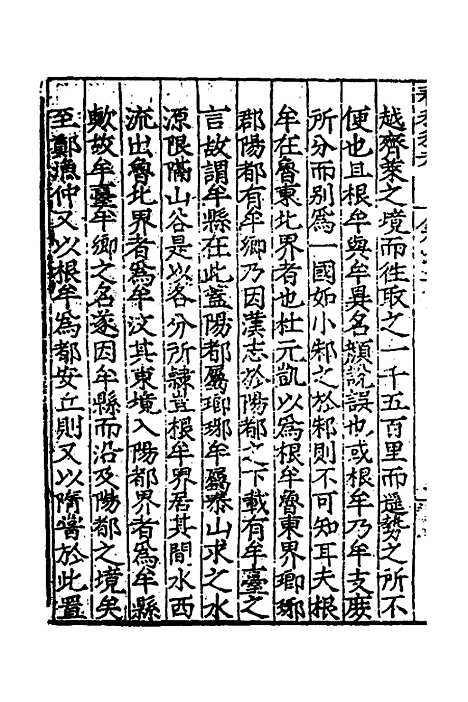 越齊萊之境而往取之一千五百里而遥勢之所不
便也且根牟與牟異名顔説誤也或根牟乃牟支庶
所分而别爲一國如小邾之於邾則不可知耳夫根
牟在魯東北界者也杜元凱以爲根牟魯東界瑯琊
郡陽都有牟鄉乃因漢志於陽都之下載有牟臺之
言故謂牟縣在此蓋陽都屬瑯琊牟屬泰山求之水
源限隔山谷是以各分所隷豈根牟界居其間水西
流出魯北界者爲牟汶其東境入陽都界者爲牟縣
歟故牟臺牟鄉之名遂因牟縣而沿及陽都之境矣
至鄭漁仲又以根牟爲都安丘則又以隋嘗於此置